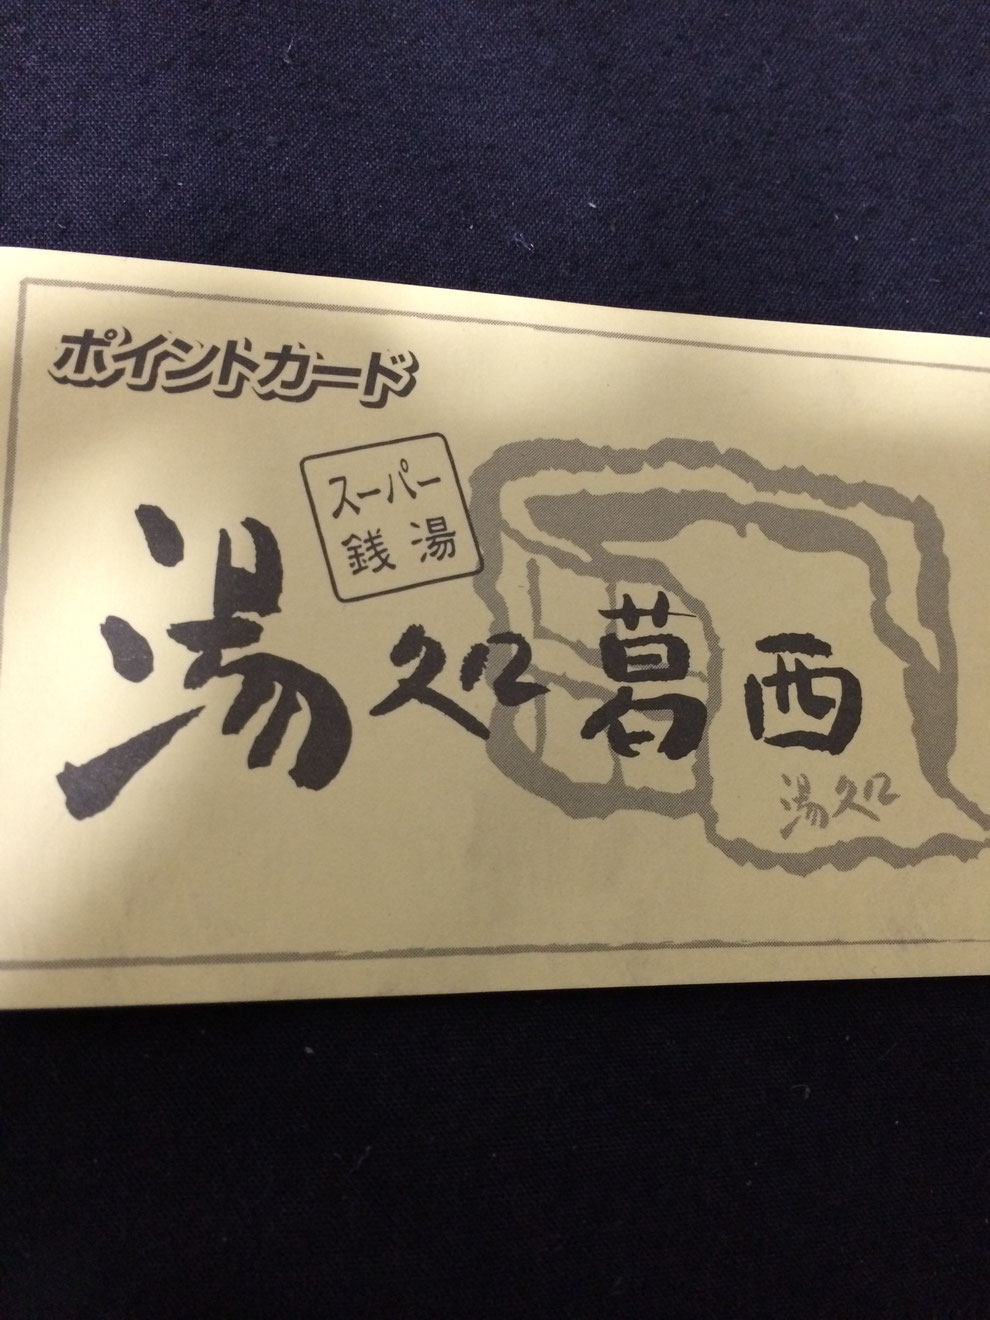 ポイントカード
スーパー
銭湯
湯処葛西
湯処